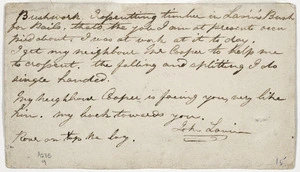 Bushwork. Crosscutting timber in Lavin's Bush
for Rails, thats the job I am at present occu
pied about, I was at work at it to day.
I get my neighbour Joe Cooper to help me
to crosscut, the felling and splitting I do
single handed.
My neighbour Cooper is facing you, very like
him. my back towards you.
John Lavin
Rover on top the log.
A238
9
15